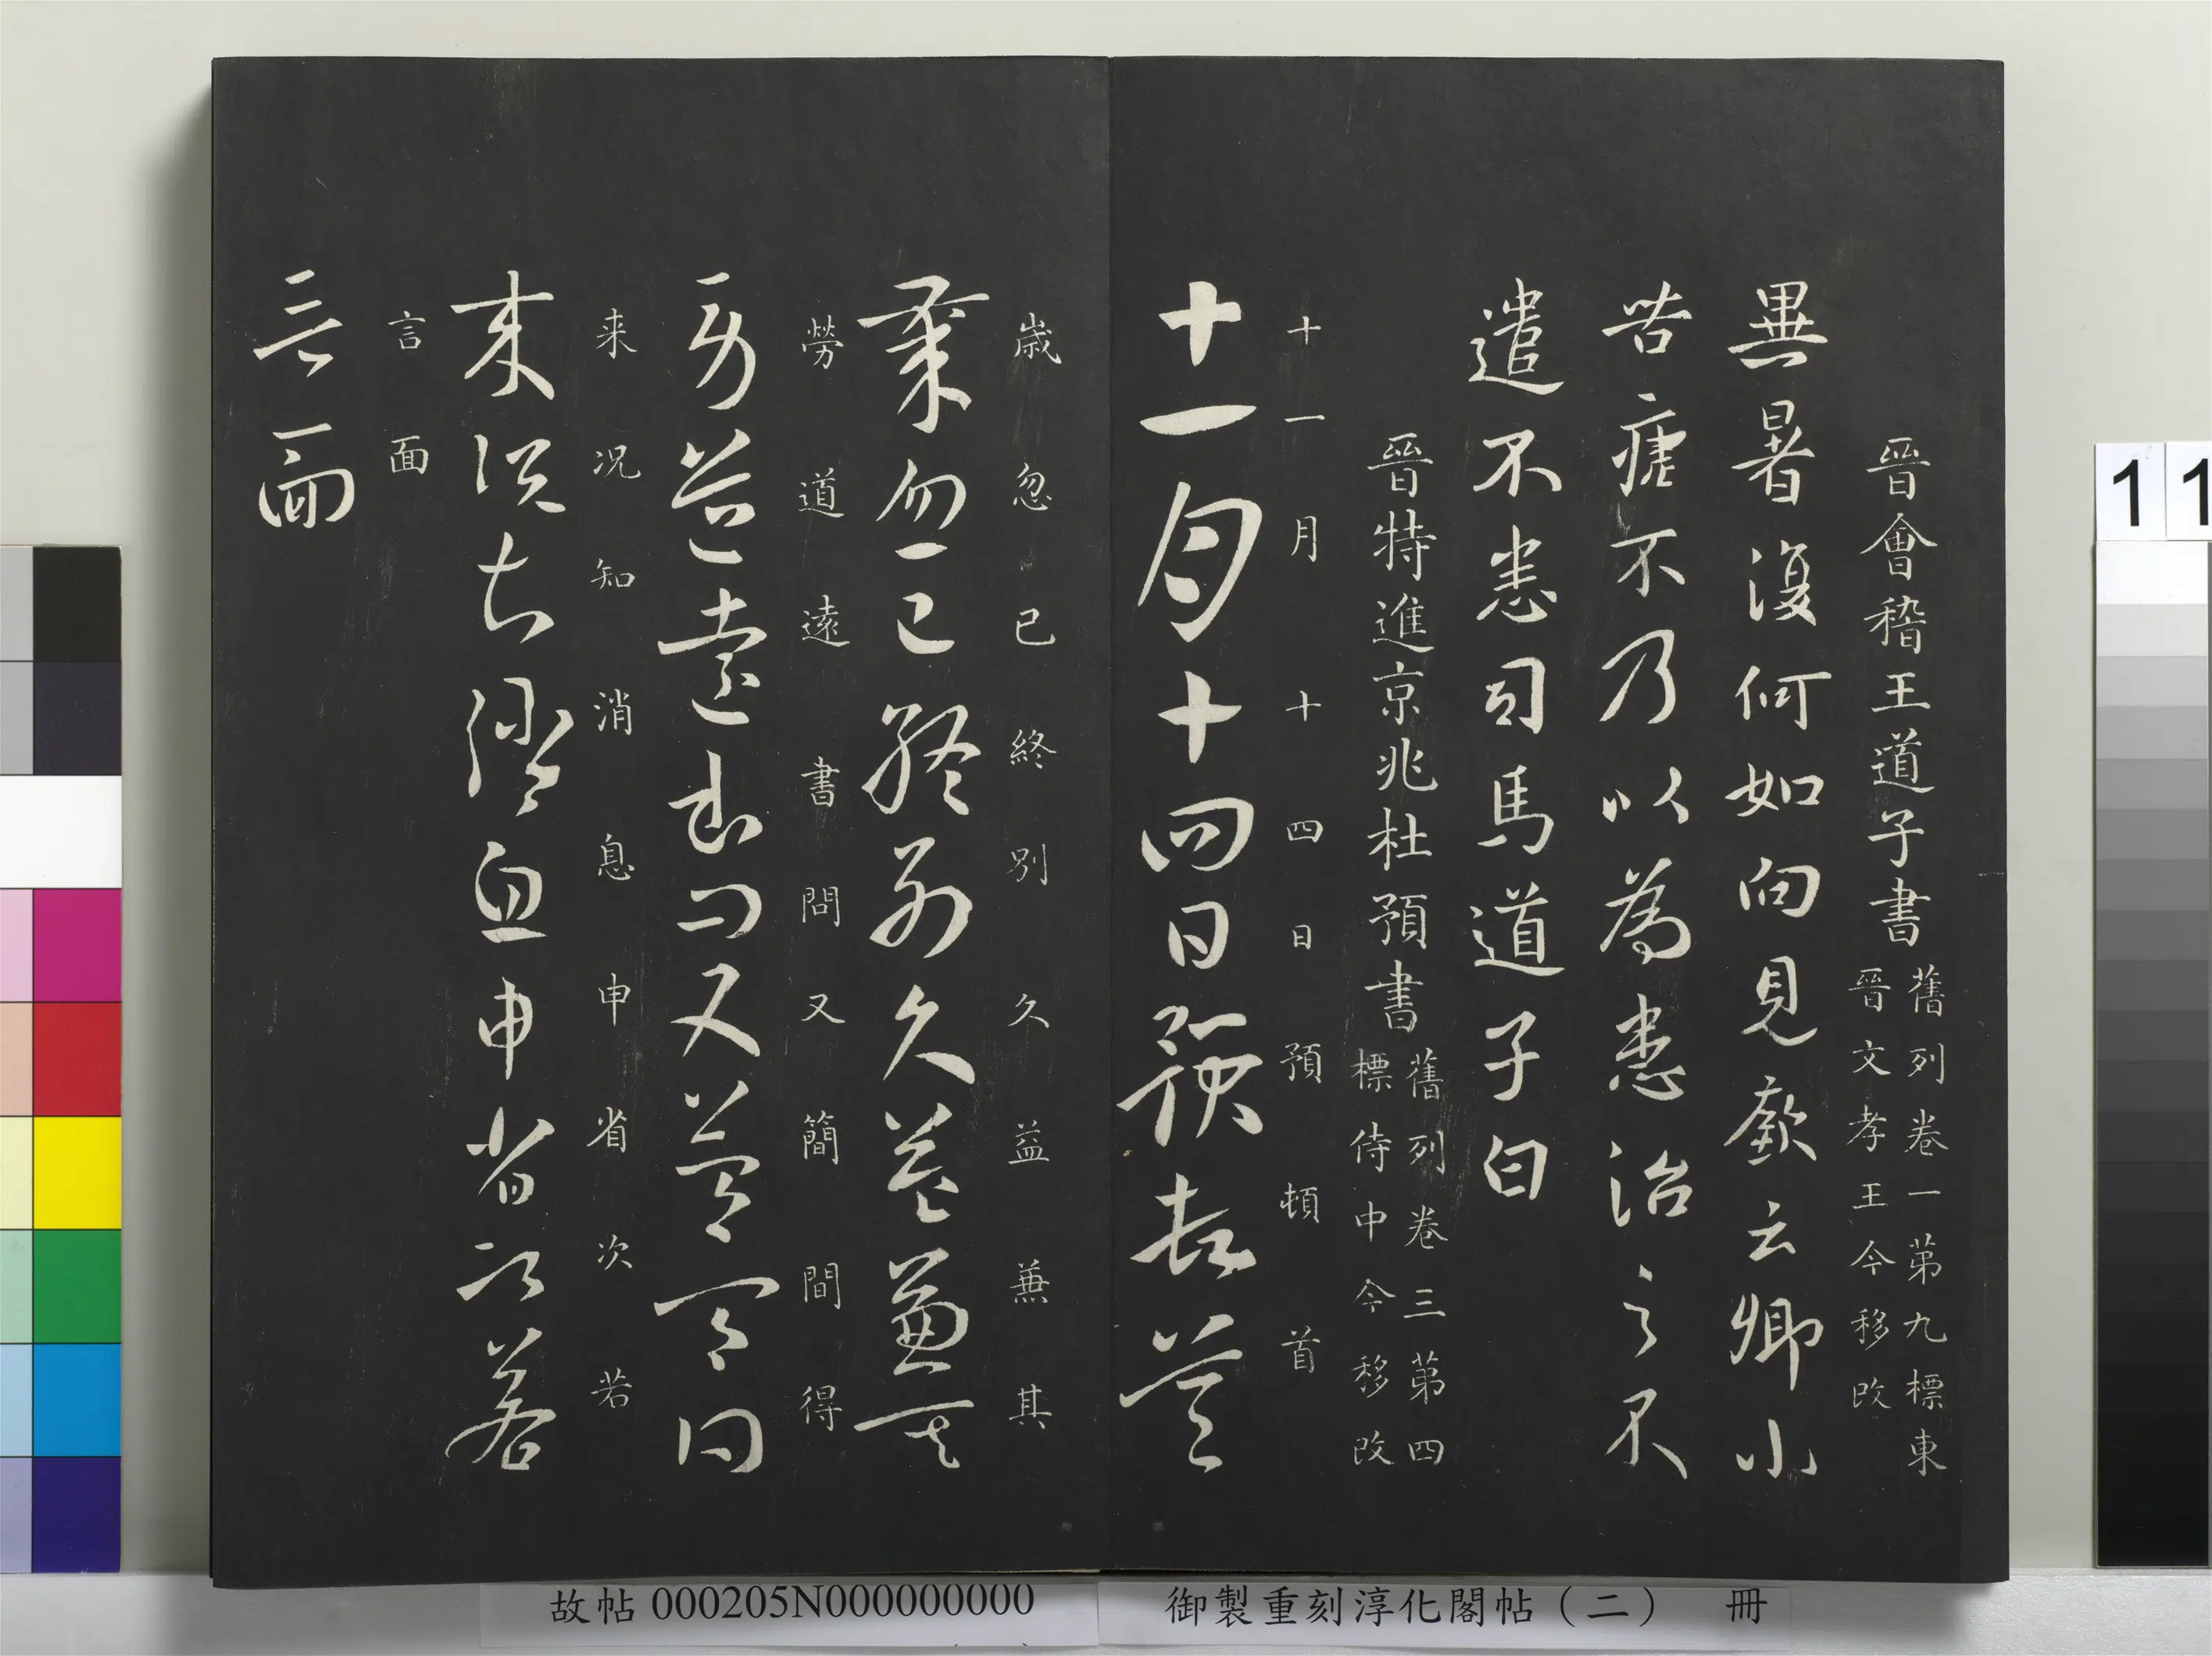 晉會稽王道子書
舊列卷一第九標東
晉文孝王今移改
異暑復何如向見歆云卿小
苦瘧不乃以為患治之不
遣不患司馬道子白
晉特進京兆杜預書
舊列卷三第四
標侍中今移改
十一月十四日預頓首
十一月十四日預頓首
歲忽已終別久益蕪其
歲忽已終別久益蕪其
勞道遠書問又簡間得
勞道遠書問又簡間得
来況知消息申省次若
来況知消息申省次若
言面
言面
11
故帖 000205N000000000
御製重刻淳化閣帖（二） 冊